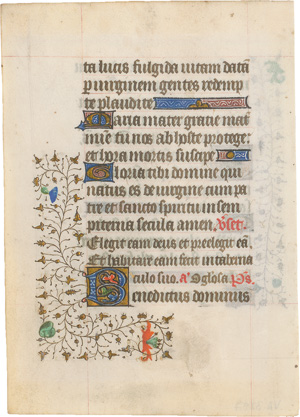 ta lucis fulgida uitam datā
p uirginem gentes redemp
te plaudite
Maria mater gratie mat
mīe tu nos ab hoste protege
et hora mortis suscipe
Gloria tibi domine qui
natus es de uirgine cum pa
tre et sancto spiritu in sem
piterna secula amen. v̄set
Elegit eam deus et preelegit eā.
Et habitare eam facit in taberna
culo suo. a' O glosa. ps
Benedictus dominus